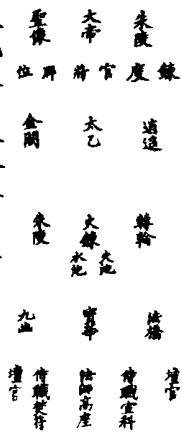 朱陵
大帝
聖像
錬度官將群位
逍遙
太乙
金闕
轉輪
大錬
朱陵
火池
水池
法橋
九幽
壇官
侍職宣科
法師高座
侍職
壇官